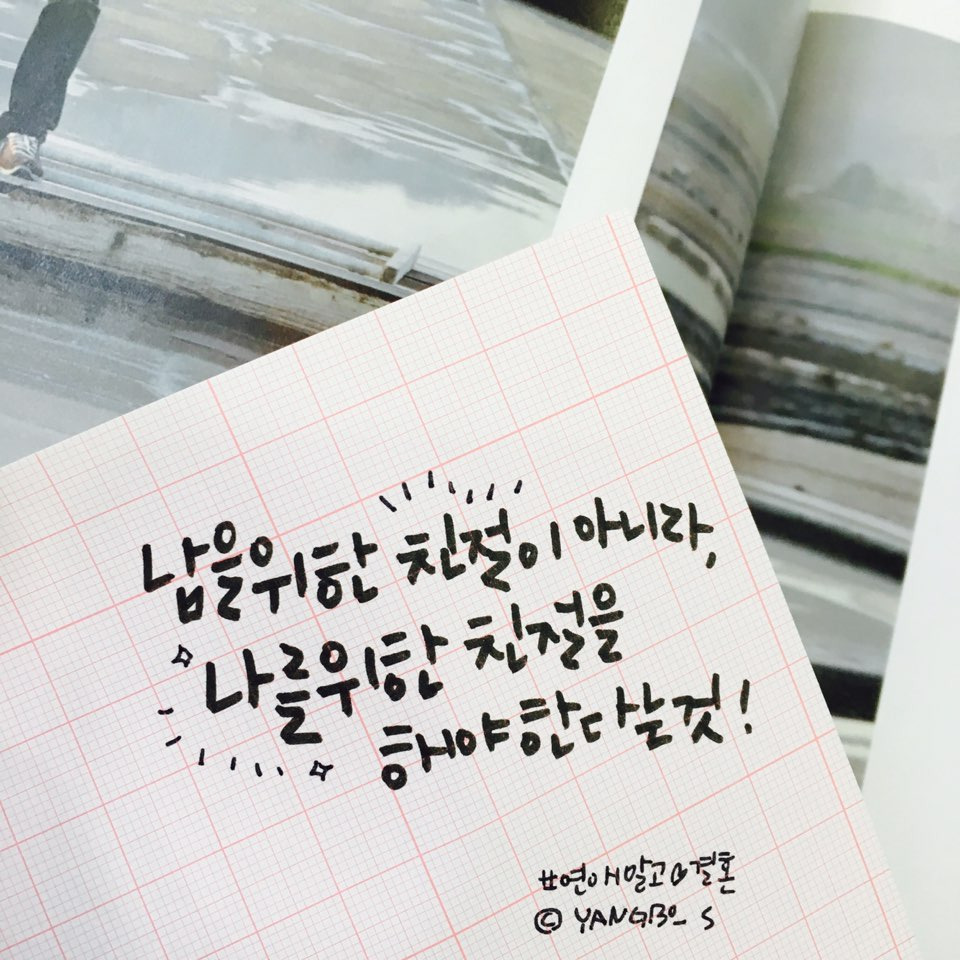 남을위한 친절이 아니라,
나를위한 친절을
해야한다는것!
#연애말고결혼
© YANGBO_S